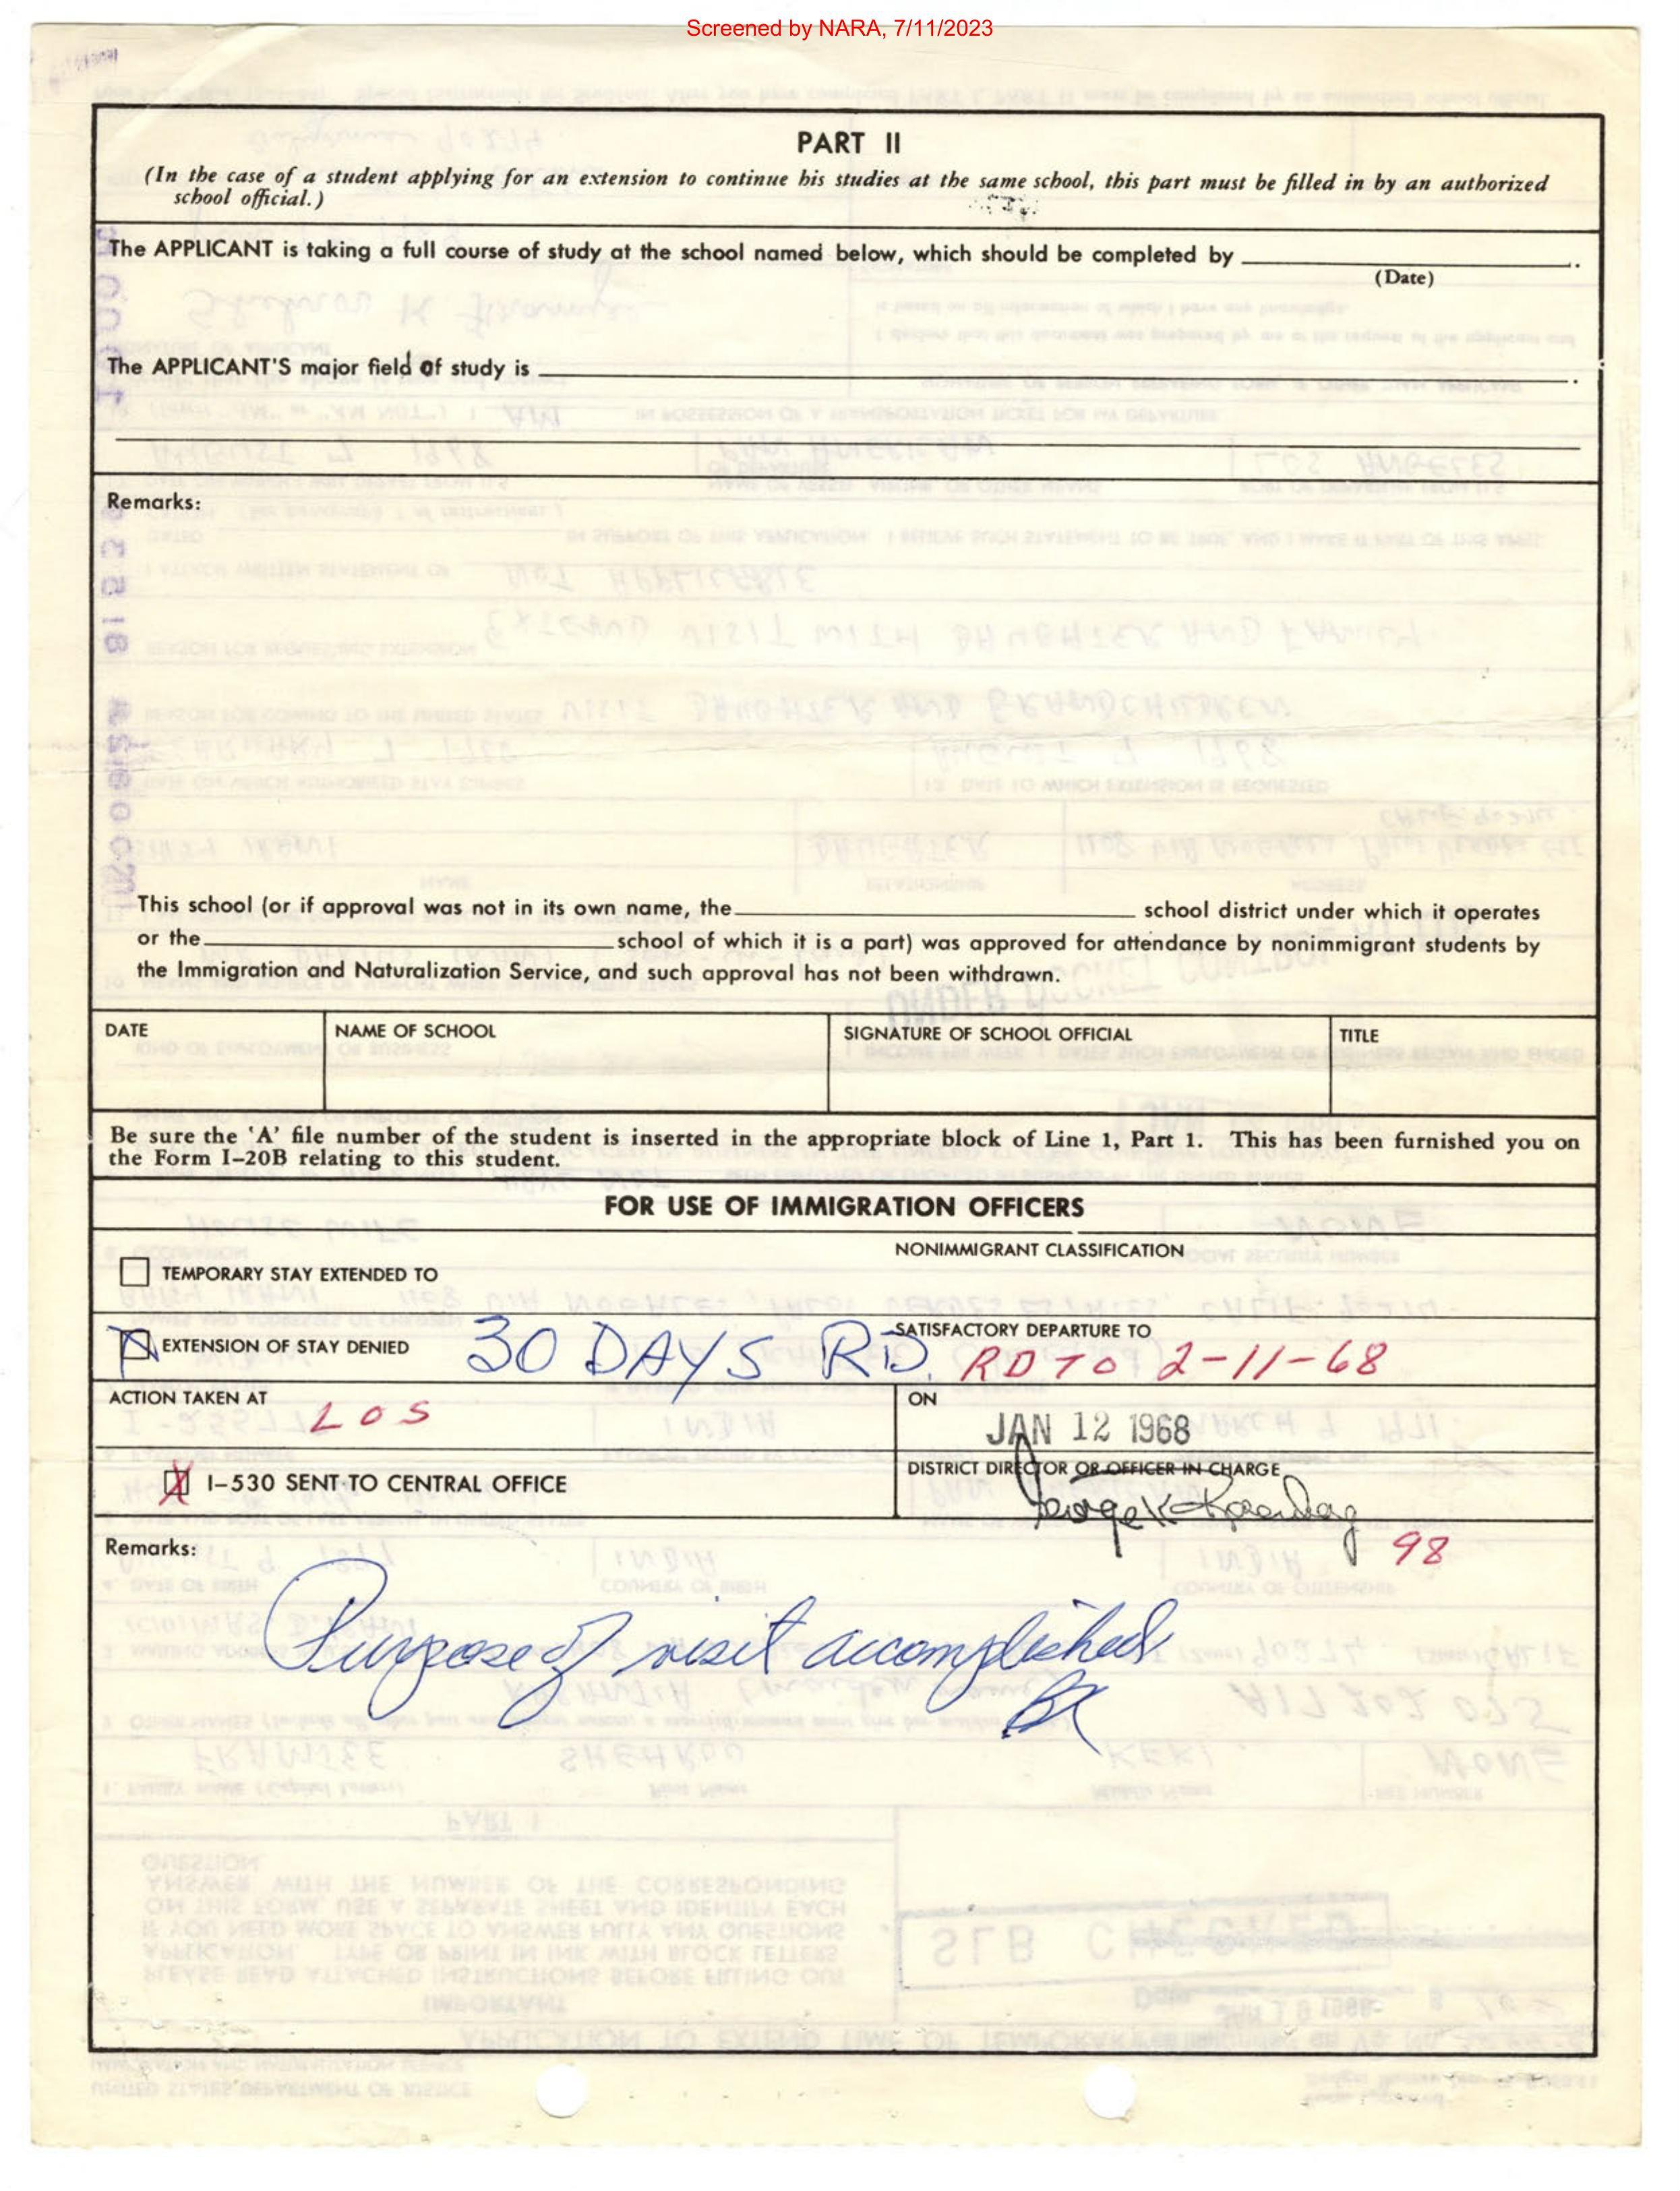 Screened by NARA, 7/11/2023
PART II
(In the case of a student applying for an extension to continue his studies at the same school, this part must be filled in by an authorized
school official.)
The APPLICANT is taking a full course of study at the school named below, which should be completed by
(Date)
The APPLICANT'S major field of study is
Remarks:
This school (or if approval was not in its own name, the school district under which it operates
or the school of which it is a part) was approved for attendance by nonimmigrant students by
the Immigration and Naturalization Service, and such approval has not been withdrawn.
DATE NAME OF SCHOOL SIGNATURE OF SCHOOL OFFICIAL TITLE
Be sure the 'A' file number of the student is inserted in the appropriate block of Line 1, Part 1. This has been furnished you on
the Form I-20B relating to this student.
FOR USE OF IMMIGRATION OFFICERS
NONIMMIGRANT CLASSIFICATION
TEMPORARY STAY EXTENDED TO
SATISFACTORY DEPARTURE TO
EXTENSION OF STAY DENIED 30 DAYS RD. RD TO 2-11-68
ACTION TAKEN AT LOS ON
JAN 12 1968
DISTRICT DIRECTOR OR OFFICER IN CHARGE
I-530 SENT TO CENTRAL OFFICE
98
Remarks:
Purpose of visit accomplished